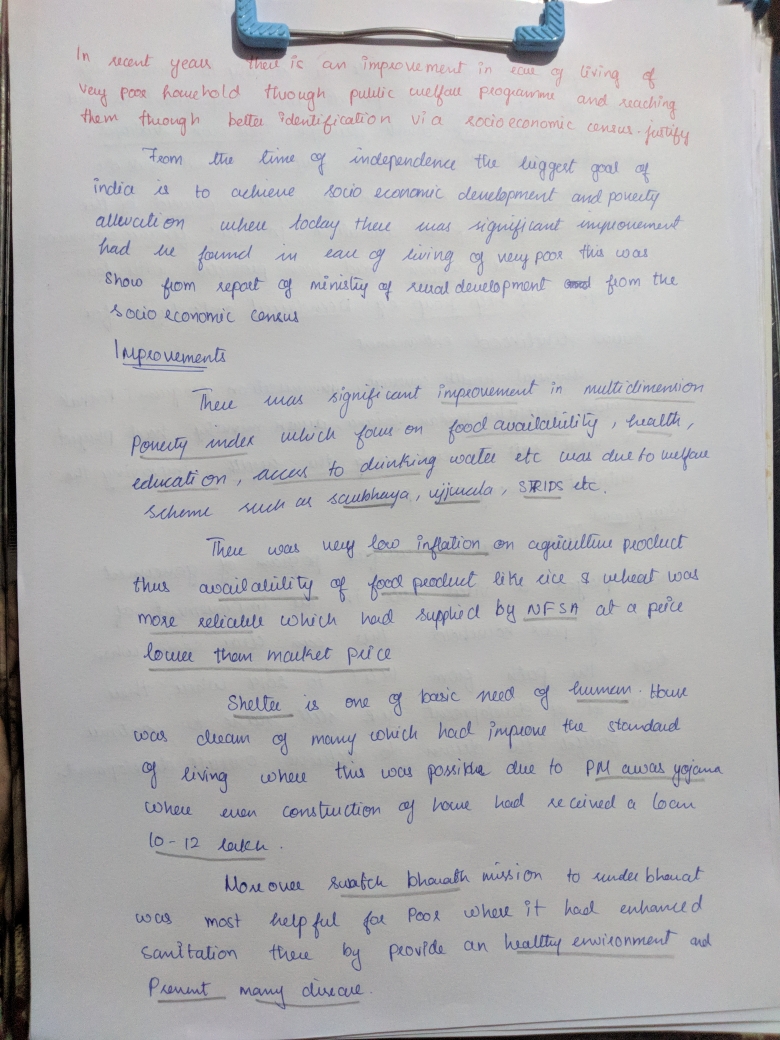 In recent years there is an improvement in ease of living of
very poor household through public welfare programme and reaching
them through better identification via a socioeconomic census. justify
From the time of independence the biggest goal of
india is to achieve socio economic development and poverty
allevcation where today there was significant improvement
had be found in ease of living of very poor this was
show from report of ministry of rural development from the
socio economic census
Improvements
There was significant improvement in multidimension
Poverty index which focus on food availability, health,
education, access to drinking water etc was due to welfare
scheme such as saubhaya, ujjwala, STRIDS etc.
There was very low inflation on agriculture product
thus availability of food product like rice & wheat was
more reliable which had supplied by NFSA at a price
lower than market price
Shelter is one of basic need of human. House
was dream of many which had improve the standard
of living where this was possible due to PM awas yojana
where even construction of home had received a loan
10-12 lakh.
Moreover swatch bharath mission to under bharat
was most helpful for Poor where it had enhanced
sanitation there by provide an healthy environment and
Prevent many disease.